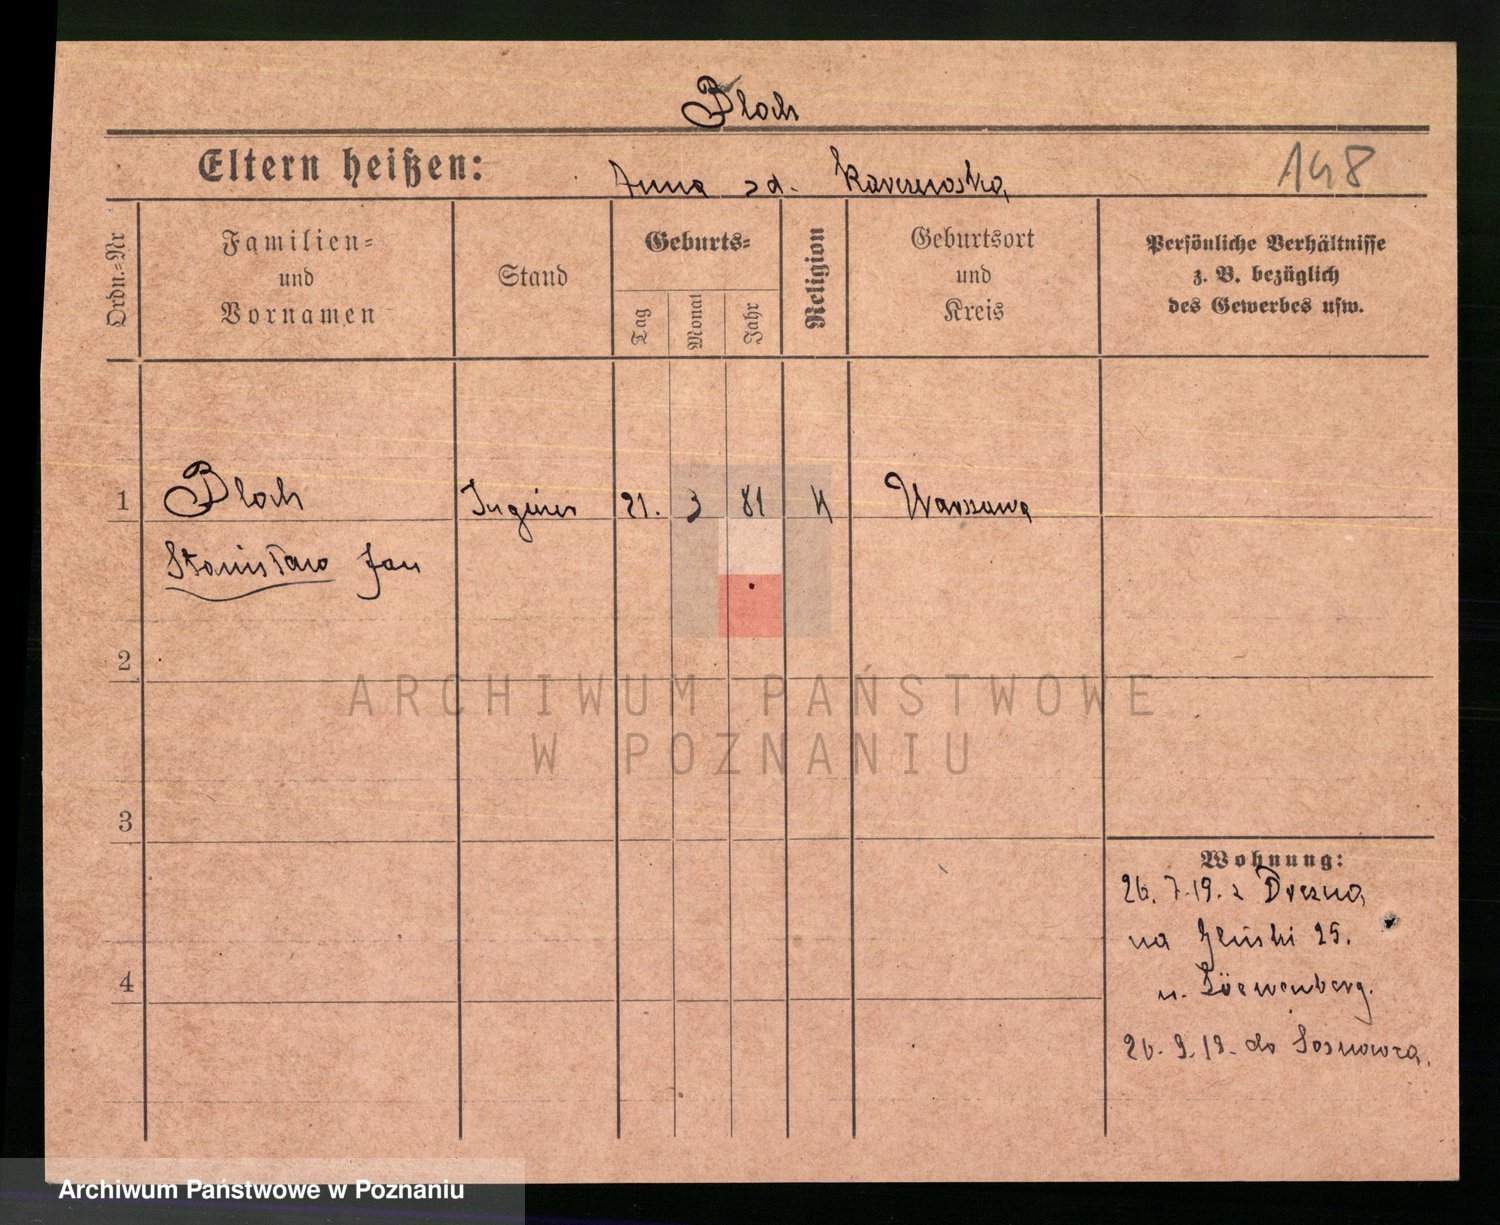 Bloch
Eltern heißen: Anna zd. 148
Ordn.=Nr
Familien=
und
Vornamen
Stand
Geburts=
Tag
Monat
Jahr
Religion
Geburtsort
und
Kreis
Persönliche Verhältnisse
z. B. bezüglich
des Gewerbes usw.
1 Bloch 21. 3 81 K Warszawa
Stanisław Jan
2
ARCHIWUM PAŃSTWOWE
W POZNANIU
3
Wohnung:
26. 7. 19. z Drezna
na 25.
4
u. Löewenberg.
26. 9. 19. do Sosnowca.
Archiwum Państwowe w Poznaniu